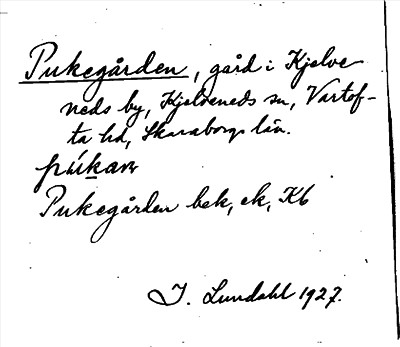 Pukegården, gård i Kjelve
neds by, Kjelveneds sn, Vartof-
ta hd, Skaraborgs län.
pu̇kaṇ
Pukegården bek, ek, Kb
I. Lundahl 1927.